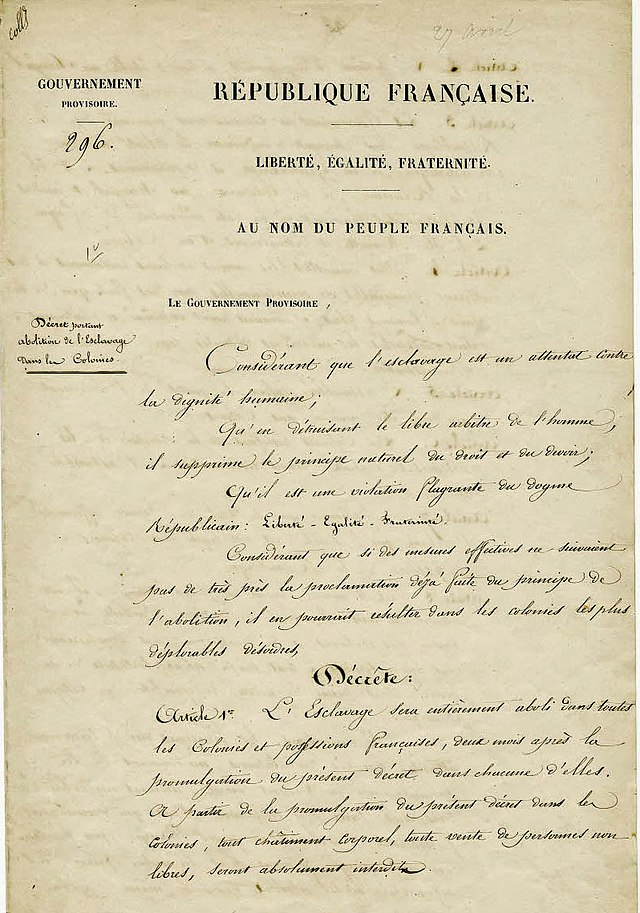 coll
27 avril
GOUVERNEMENT
PROVISOIRE.
296.
RÉPUBLIQUE FRANÇAISE.
LIBERTÉ, ÉGALITÉ, FRATERNITÉ.
AU NOM DU PEUPLE FRANÇAIS.
LE GOUVERNEMENT PROVISOIRE,
Décret portant
abolition de l'Esclavage
dans les Colonies.
Considérant que l'esclavage est un attentat contre
la dignité humaine;
Qu'en détruisant le libre arbitre de l'homme,
il supprime le principe naturel du droit et du devoir;
Qu'il est une violation flagrante du dogme
Républicain: Liberté - Egalité - Fraternité.
Considérant que si des mesures effectives ne suivaient
pas de très près la proclamation déjà faite du principe de
l'abolition, il en pourrait résulter dans les colonies les plus
déplorables désordres,
Décrète:
Article 1er L'Esclavage sera entièrement aboli dans toutes
les Colonies et possessions françaises, deux mois après la
promulgation du présent décret dans chacune d'elles.
A partir de la promulgation du présent décret dans les
colonies, tout châtiment corporel, toute vente de personnes non
libres, seront absolument interdits.